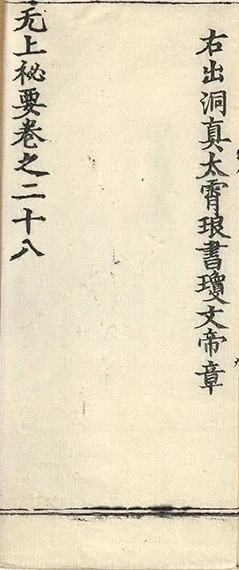 右出洞真太霄琅書瓊文帝章
无上祕要卷之二十八